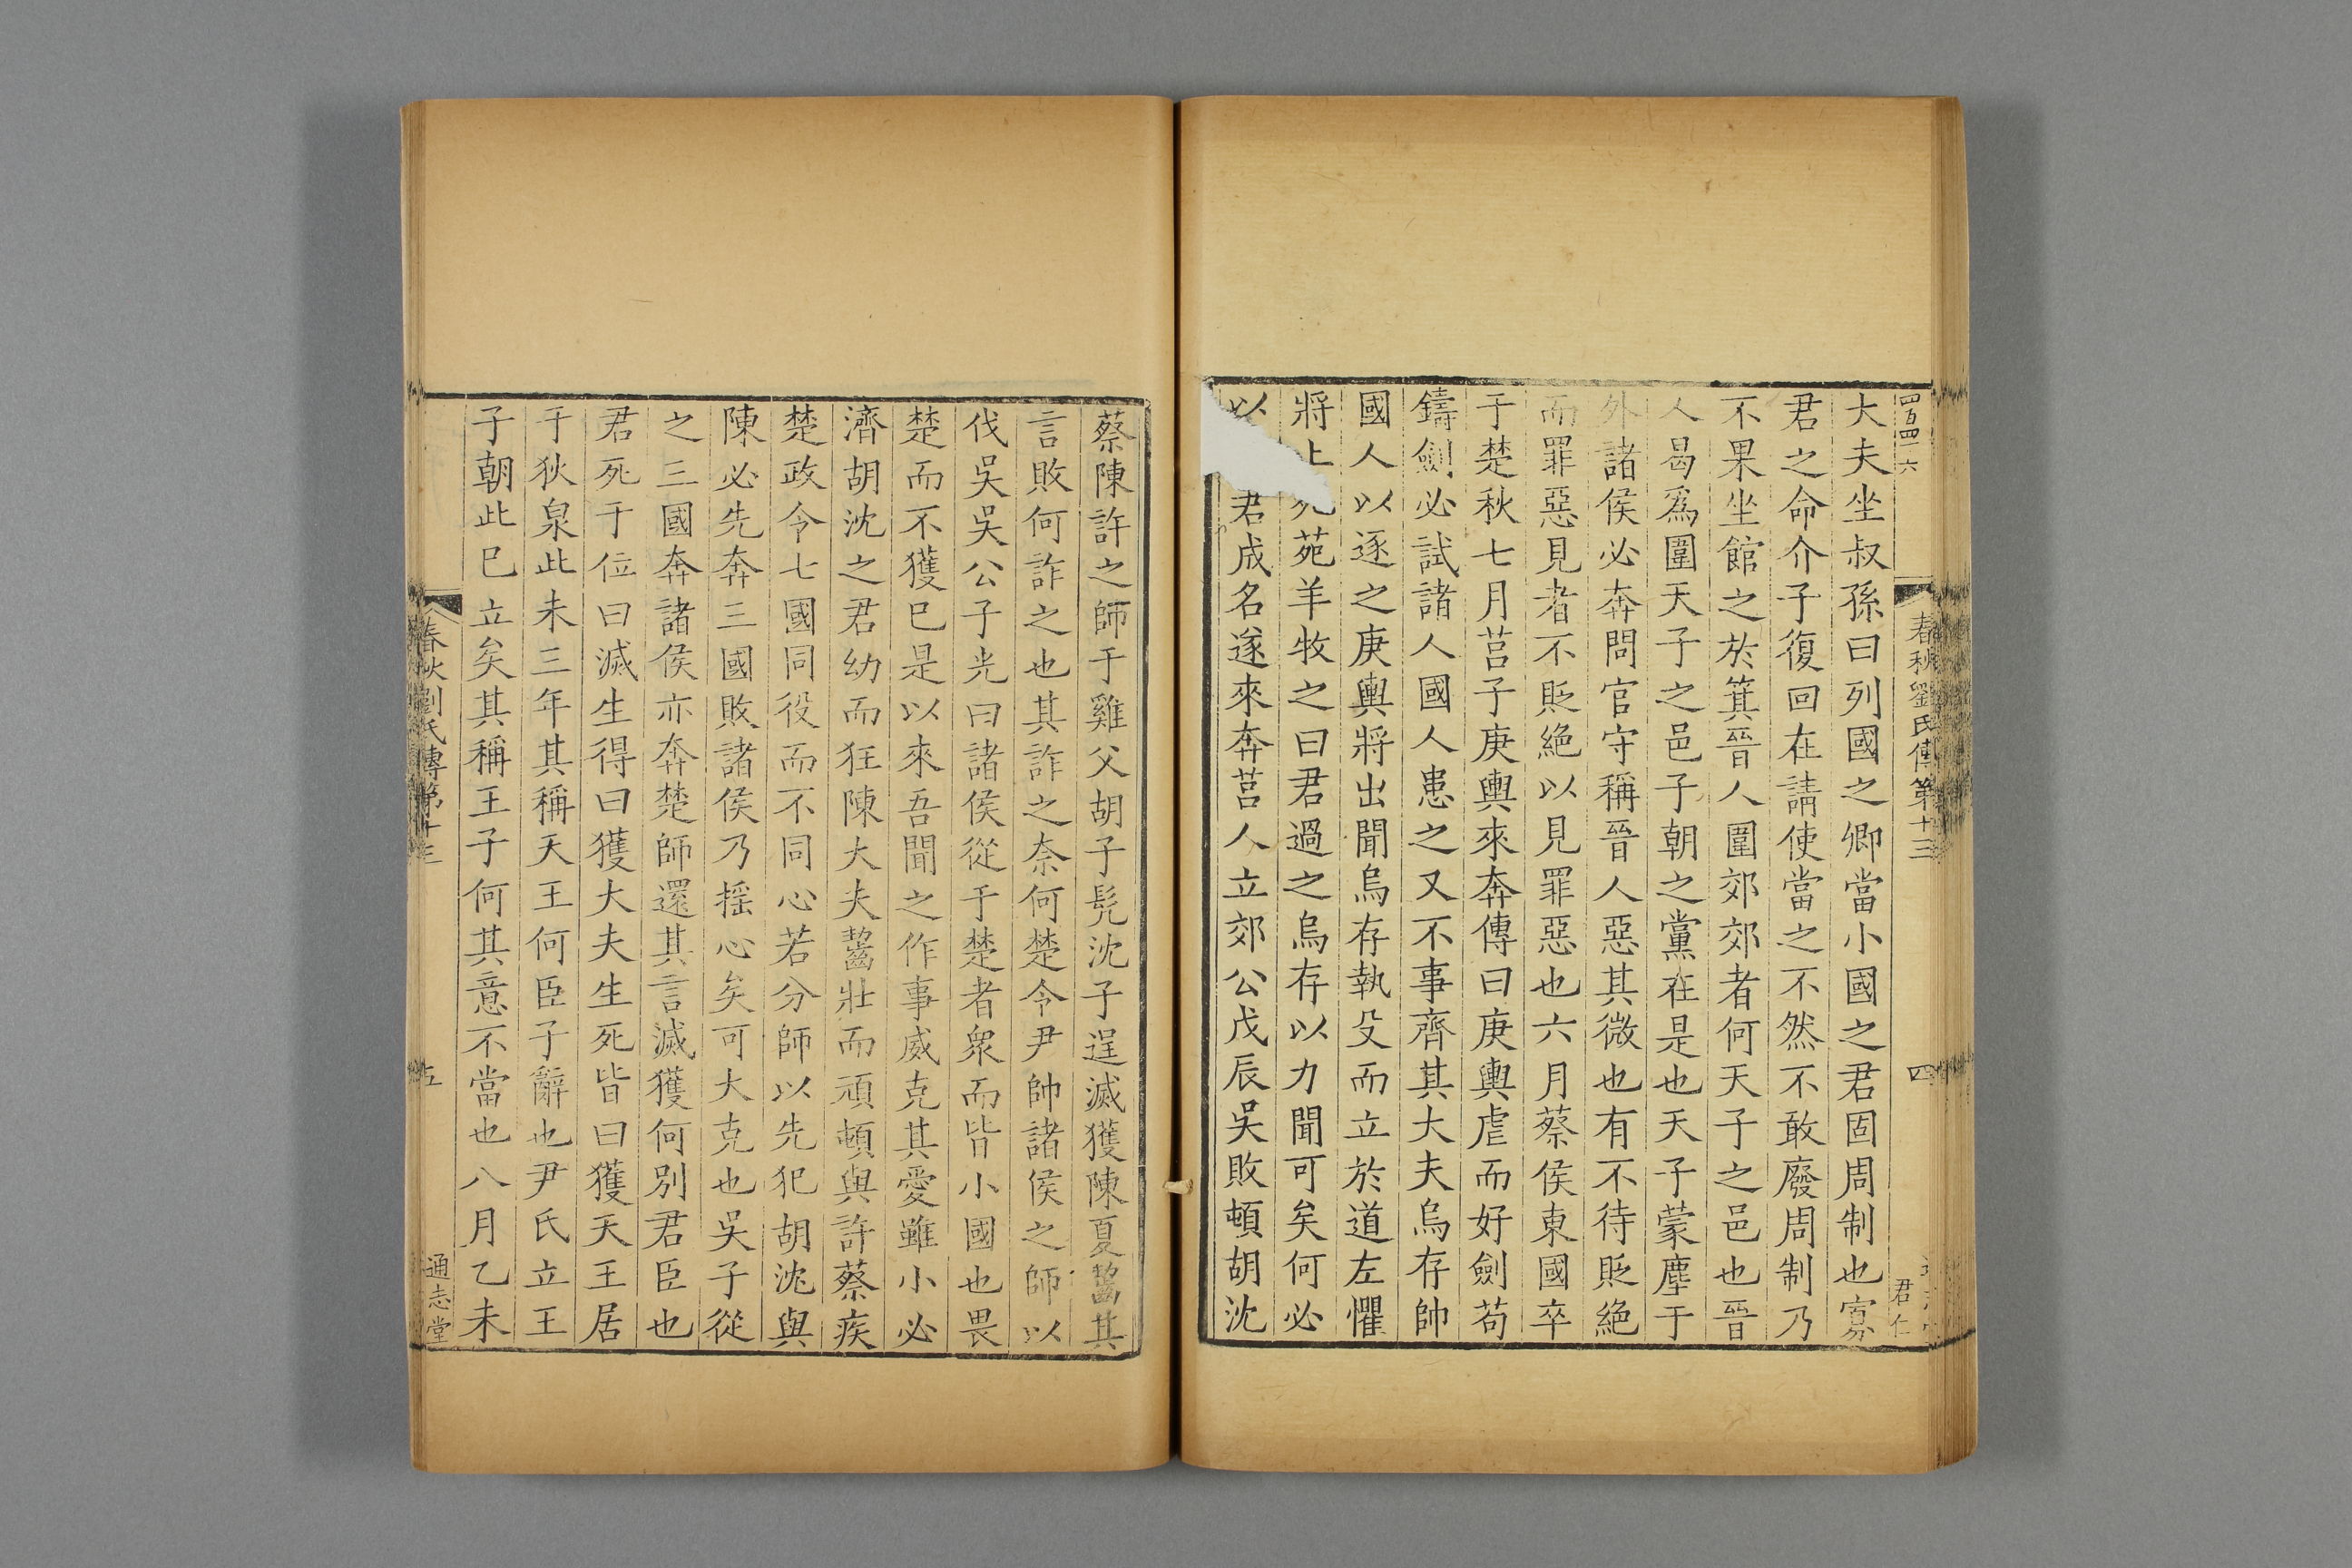 四百四十六
春秋劉氏傳第十三
四
君仁
大夫坐叔孫曰列國之卿當小國之君固周制也寡
君之命介子復回在請使當之不然不敢廢周制乃
不果坐館之於箕晉人圍郊郊者何天子之邑也晉
人曷爲圍天子之邑子朝之黨在是也天子蒙塵于
外諸侯必奔問官守稱晉人惡其微也有不待貶絕
而罪惡見者不貶絕以見罪惡也六月蔡侯東國卒
于楚秋七月莒子庚輿來奔傳曰庚輿虐而好劍苟
鑄劍必試諸人國人患之又不事齊其大夫烏存帥
國人以逐之庚輿將出聞烏存執殳而立於道左懼
將止死苑羊牧之曰君過之烏存以力聞可矣何必
以君成名遂來奔莒人立郊公戊辰吳敗頓胡沈
蔡陳許之師于雞父胡子髠沈子逞滅獲陳夏齧其
言敗何詐之也其詐之奈何楚令尹帥諸侯之師以
伐吳吳公子光曰諸侯從于楚者衆而皆小國也畏
楚而不獲已是以來吾聞之作事威克其愛雖小必
濟胡沈之君幼而狂陳大夫齧壯而頑頓與許蔡疾
楚政令七國同役而不同心若分師以先犯胡沈與
陳必先奔三國敗諸侯乃揺心矣可大克也吳子從
之三國奔諸侯亦奔楚師還其言滅獲何別君臣也
君死于位曰滅生得曰獲大夫生死皆曰獲天王居
于狄泉此未三年其稱天王何臣子辭也尹氏立王
子朝此已立矣其稱王子何其意不當也八月乙未
春秋劉氏傳第十三
五
通志堂